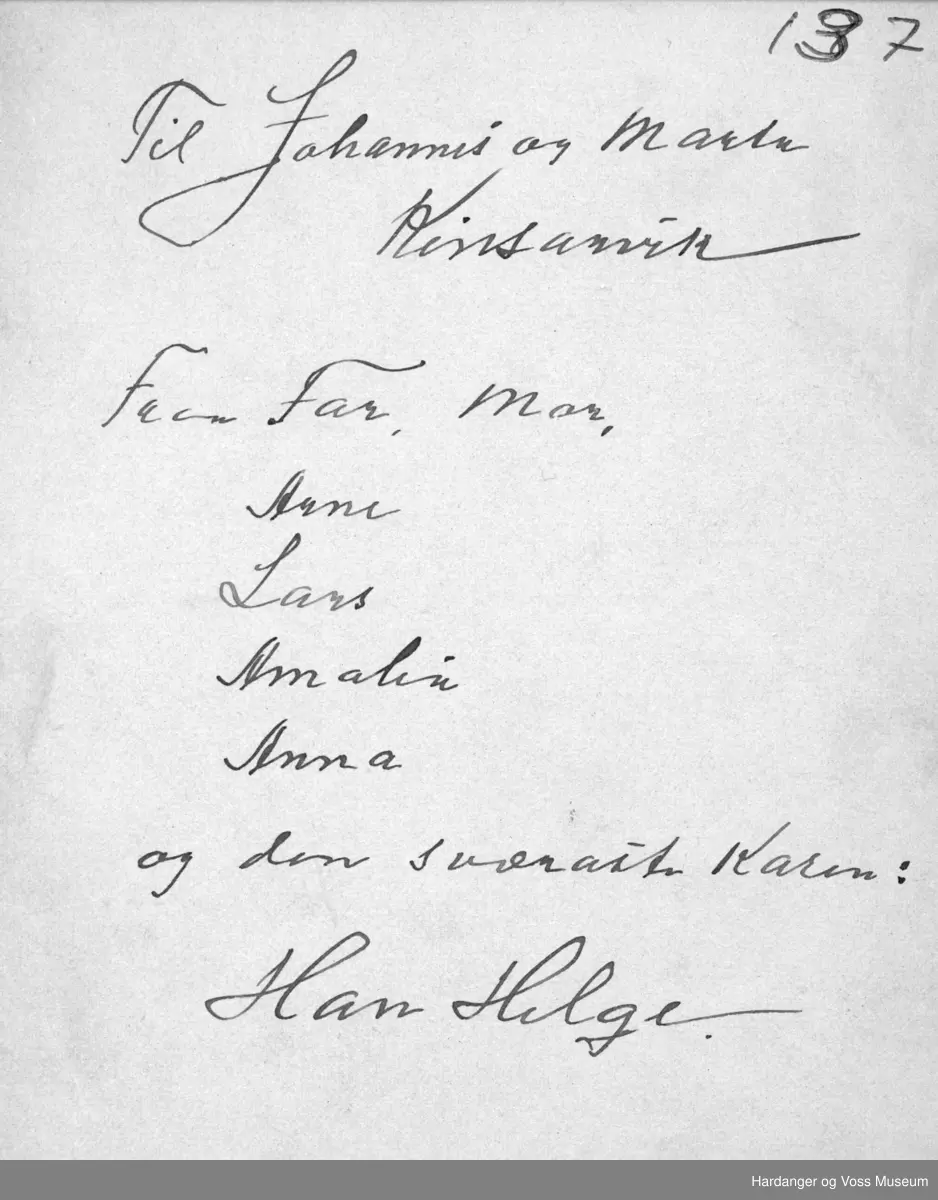 137
Til Johannes og Marta
Kinsarvik
Fraa Far, Mor,
Arne
Lars
Amalia
Anna
og den sværaste Karen:
Han Helge.
Hardanger og Voss Museum